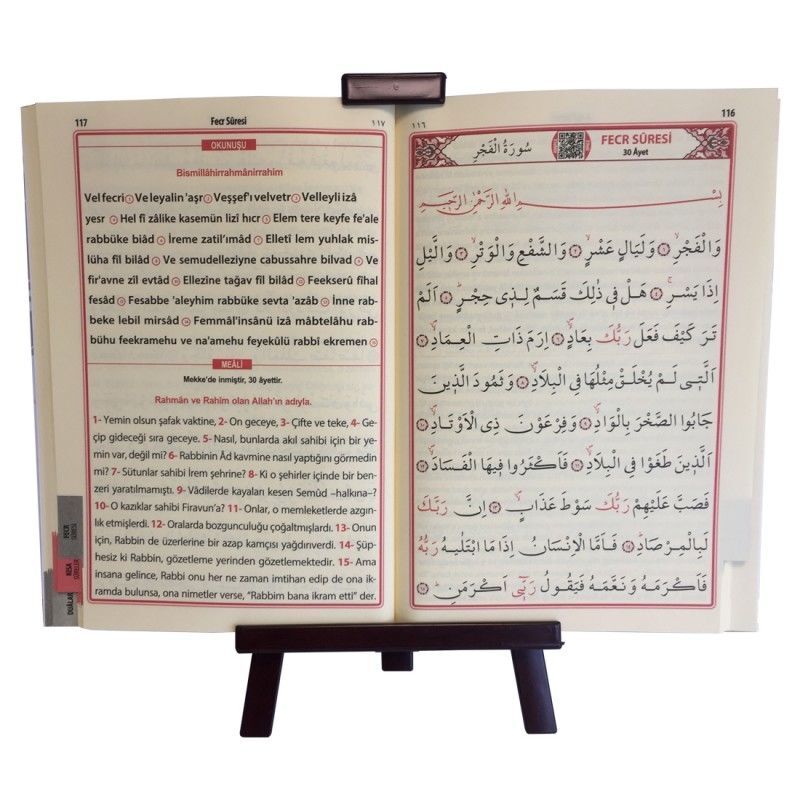 117 Fecr Sûresi ١١٧
OKUNUŞU
Bismillâhirrahmânirrahim
Vel fecri Ve leyalin 'aşr Veşşef'ı velvetr Velleyli izâ
yesr Hel fî zâlike kasemün lizî hıcr Elem tere keyfe fe'ale
rabbüke biâd İreme zatil'ımâd Elletî lem yuhlak mis-
lüha fîl bilâd Ve semudelleziyne cabussahre bilvad Ve
fir'avne zîl evtâd Ellezîne tağav fîl bilâd Feekserû fîhal
fesâd Fesabbe 'aleyhim rabbüke sevta 'azâb İnne rab-
beke lebil mirsâd Femmâl'insânü izâ mâbtelâhu rab-
bühu feekramehu ve na'amehu feyekûlü rabbî ekremen
MEÂLİ
Mekke'de inmiştir, 30 âyettir.
Rahmân ve Rahîm olan Allah'ın adıyla.
1- Yemin olsun şafak vaktine, 2- On geceye, 3- Çifte ve teke, 4- Ge-
çip gideceği sıra geceye. 5- Nasıl, bunlarda akıl sahibi için bir ye-
min var, değil mi? 6- Rabbinin Âd kavmine nasıl yaptığını görmedin
mi? 7- Sütunlar sahibi İrem şehrine? 8- Ki o şehirler içinde bir ben-
zeri yaratılmamıştı. 9- Vâdilerde kayaları kesen Semûd –halkına–?
10- O kazıklar sahibi Firavun'a? 11- Onlar, o memleketlerde azgın-
lık etmişlerdi. 12- Oralarda bozgunculuğu çoğaltmışlardı. 13- Onun
için, Rabbin de üzerlerine bir azap kamçısı yağdırıverdi. 14- Şüp-
hesiz ki Rabbin, gözetleme yerinden gözetlemektedir. 15- Ama
insana gelince, Rabbi onu her ne zaman imtihan edip de ona ik-
ramda bulunsa, ona nimetler verse, "Rabbim bana ikram etti" der.
FECR
SÛRESİ
KISA
SÛRELER
DUALAR
١١٦ 116
سُورَةُ الْفَجْرِ
FECR SÛRESİ
30 Âyet
بِسْمِ اللهِ الرَّحْمٰنِ الرَّحِيمِ
وَالْفَجْرِۙ ﴿١﴾ وَلَيَالٍ عَشْرٍۙ ﴿٢﴾ وَالشَّفْعِ وَالْوَتْرِۙ ﴿٣﴾ وَالَّيْلِ
اِذَا يَسْرِۚ ﴿٤﴾ هَلْ فِي ذٰلِكَ قَسَمٌ لِذِي حِجْرٍۜ ﴿٥﴾ اَلَمْ
تَرَ كَيْفَ فَعَلَ رَبُّكَ بِعَادٍۙ ﴿٦﴾ اِرَمَ ذَاتِ الْعِمَادِۙ ﴿٧﴾
اَلَّتِي لَمْ يُخْلَقْ مِثْلُهَا فِي الْبِلَادِۙ ﴿٨﴾ وَثَمُودَ الَّذِينَ
جَابُوا الصَّخْرَ بِالْوَادِۙ ﴿٩﴾ وَفِرْعَوْنَ ذِي الْاَوْتَادِۙ ﴿١٠﴾
اَلَّذِينَ طَغَوْا فِي الْبِلَادِۙ ﴿١١﴾ فَاَكْثَرُوا فِيهَا الْفَسَادَۙ ﴿١٢﴾
فَصَبَّ عَلَيْهِمْ رَبُّكَ سَوْطَ عَذَابٍۚ ﴿١٣﴾ اِنَّ رَبَّكَ
لَبِالْمِرْصَادِۜ ﴿١٤﴾ فَاَمَّا الْاِنْسَانُ اِذَا مَا ابْتَلٰيهُ رَبُّهُ
فَاَكْرَمَهُ وَنَعَّمَهُ فَيَقُولُ رَبِّي اَكْرَمَنِۜ ﴿١٥﴾